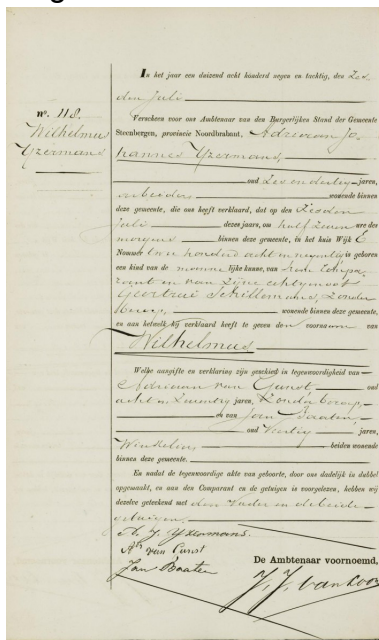 In het jaar een duizend acht honderd negen en tachtig, den Zes
den Juli
nº. 118.
Wilhelmus
Yzermans
Verscheen voor ons Ambtenaar van den Burgerlijken Stand der Gemeente
Steenbergen, provincie Noordbrabant, Adriaan Jo-
hannes Yzermans,
oud Zes en dertig jaren,
arbeider, wonende binnen
deze gemeente, die ons heeft verklaard, dat op den Zesden
Juli dezes jaars, om half Zeven ure des
morgens binnen deze gemeente, in het huis Wijk E
Nommer twee honderd acht en negentig is geboren
een kind van de mannelijke kunne, van hem Compa-
rant en van zijne echtgenoot
Geertrui Schillemans, Zonder
beroep, wonende binnen deze gemeente,
en aan hetwelk hij verklaard heeft te geven den voornaam van
Wilhelmus
Welke aangifte en verklaring zijn geschied in tegenwoordigheid van
Adriaan van Gunst, oud
acht en Zeventig jaren, Zonder beroep,
en van Jan Baaten,
oud Veertig jaren,
Winkelier, beiden wonende
binnen deze gemeente.
En nadat de tegenwoordige akte van geboorte, door ons dadelijk in dubbel
opgemaakt, en aan den Comparant en de getuigen is voorgelezen, hebben wij
dezelve geteekend met den Vader en de beide
getuigen,
A. J. Yzermans.
Adr van Gunst
Jan Baaten
De Ambtenaar voornoemd,
J. J. van Loon